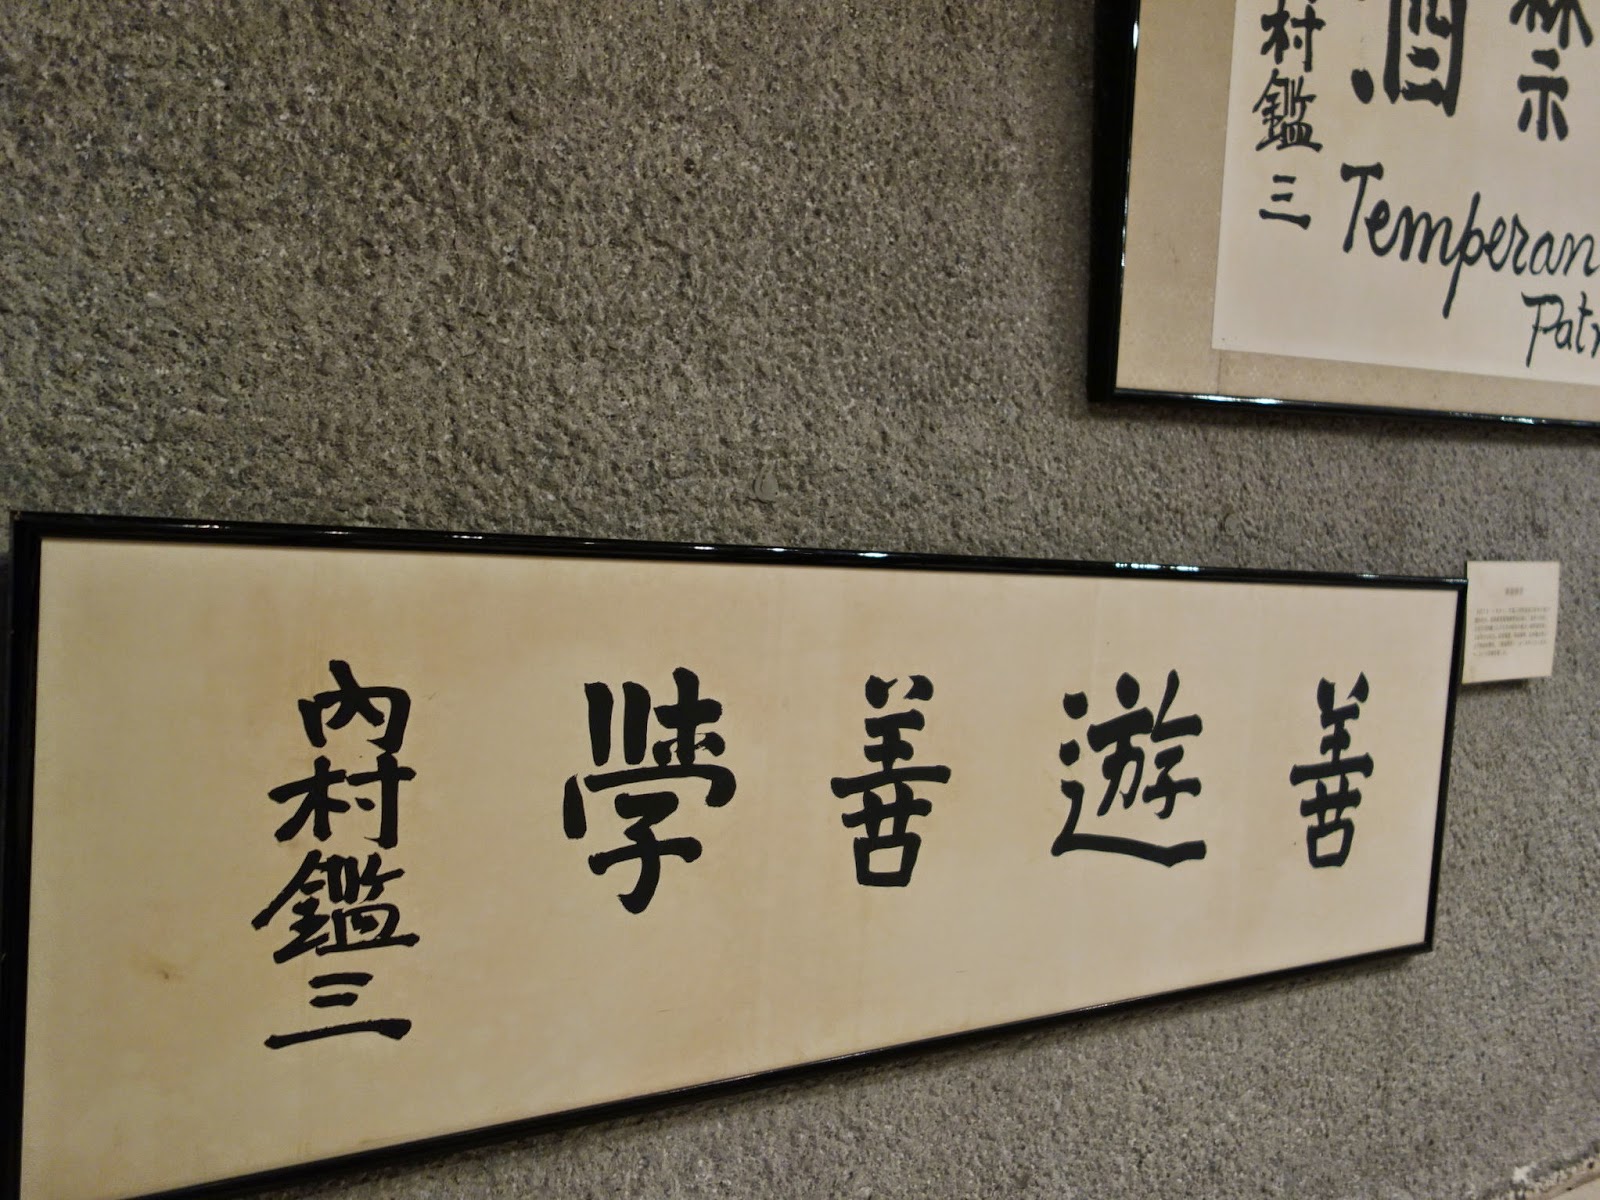 善遊善學
內村鑑三
禁
酒
村鑑三
Temperan
Patr